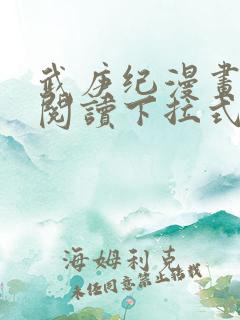 武庚纪漫畫
閱讀下拉式
海姆利克
未经同意禁止转载